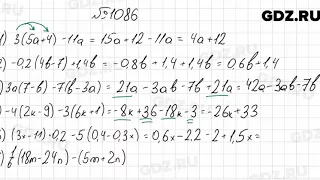 GDZ.RU
№1086
1) 3(5a+4)-11a=15a+12-11a=4a+12
2) -0,2(4b-7)+1,4b=-0,8b+1,4+1,4b=0,6b+1,4
3a(7-b)-7(b-3a)=21a-3ab-7b+21a=42a-3ab-7b
-4(2k-9)-3(6k+1)=-8k+36-18k-3=-26k+33
(3x-11)·0,2-5(0,4-0,3x)=0,6x-2,2-2+1,5x=
1/6(18m-24n)-(5m+2n)